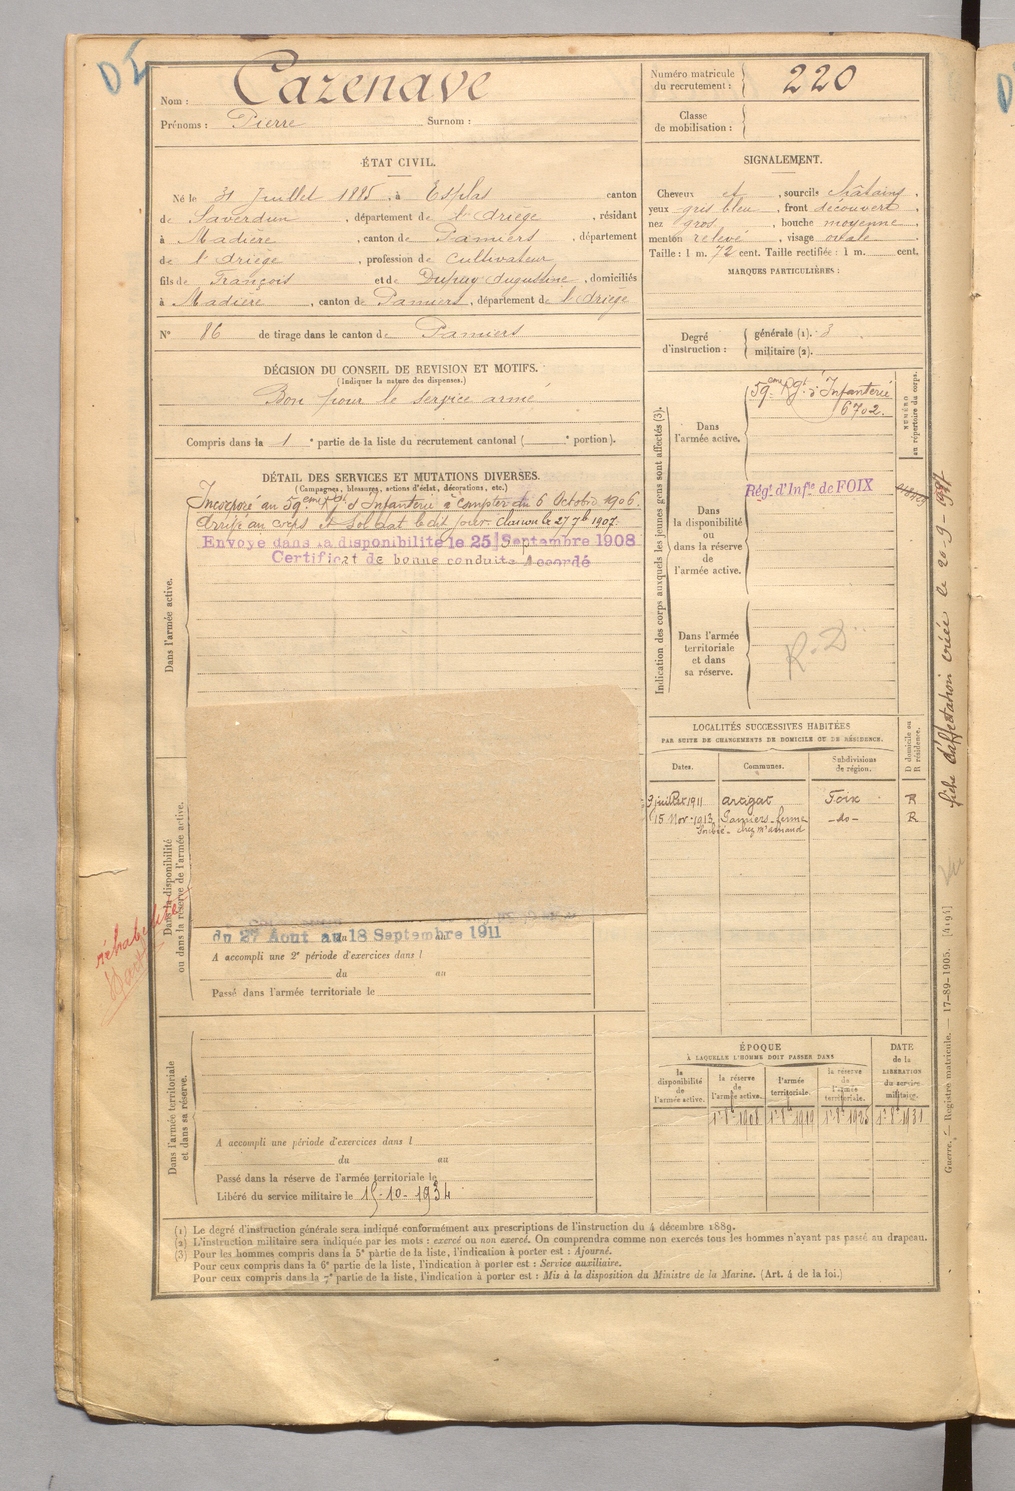 Nom : Cazenave
Prénoms : Pierre Surnom :
Numéro matricule
du recrutement : 220
Classe
de mobilisation :
ÉTAT CIVIL.
Né le 31 Juillet 1885, à Esplas canton
de Saverdun, département de l'Ariège, résidant
à Madière, canton de Pamiers, département
de l'Ariège, profession de Cultivateur
fils de François et de Dupuy Augustine, domiciliés
à Madière, canton de Pamiers, département de l'Ariège
N° 86 de tirage dans le canton de Pamiers
SIGNALEMENT.
Cheveux et, sourcils châtains,
yeux gris bleu, front découvert,
nez gros, bouche moyenne
menton relevé, visage ovale
Taille : 1 m. 72 cent. Taille rectifiée : 1 m. cent.
MARQUES PARTICULIÈRES :
Degré
d'instruction :
générale (1). 3
militaire (2).
DÉCISION DU CONSEIL DE REVISION ET MOTIFS.
(Indiquer la nature des dispenses.)
Bon pour le service armé
Compris dans la 1e partie de la liste du recrutement cantonal ( e portion).
DÉTAIL DES SERVICES ET MUTATIONS DIVERSES.
(Campagnes, blessures, actions d'éclat, décorations, etc.)
Incorporé au 59eme Rgt d'Infanterie à compter du 6 Octobre 1906.
Arrivé au corps et soldat le dit jour. Clairon le 27 7b 1907.
Envoyé dans la disponibilité le 25 Septembre 1908
Certificat de bonne conduite Accordé
Dans l'armée active.
Dans la disponibilité
ou dans la réserve de l'armée active.
du 27 Aout au 18 Septembre 1911
A accompli une 2e période d'exercices dans l
du au
Passé dans l'armée territoriale le
Dans l'armée territoriale
et dans sa réserve.
A accompli une période d'exercices dans l
du au
Passé dans la réserve de l'armée territoriale le
Libéré du service militaire le 15-10-1934
Indication des corps auxquels les jeunes gens sont affectés (3).
NUMÉRO
au répertoire du corps.
Dans
l'armée active.
59eme Rgt d'Infanterie
6702.
Dans
la disponibilité
ou
dans la réserve
de
l'armée active.
Régt d'Infie de FOIX
Dans l'armée
territoriale
et dans
sa réserve.
R.D
LOCALITÉS SUCCESSIVES HABITÉES
PAR SUITE DE CHANGEMENTS DE DOMICILE OU DE RÉSIDENCE.
Dates. Communes. Subdivisions
de région.
D domicile ou
R résidence.
3 juillet 1911 Foix R
15 Nov. 1913 Pamiers - ferme -do- R
ÉPOQUE
À LAQUELLE L'HOMME DOIT PASSER DANS
la
disponibilité
de
l'armée active.
la réserve
de
l'armée active.
l'armée
territoriale.
la réserve
de
l'armée
territoriale.
DATE
de la
LIBÉRATION
du service
militaire.
fiche d'affectation créée le 20-9-
Guerre. — Registre matricule. — 17-89-1905. [4194]
(1) Le degré d'instruction générale sera indiqué conformément aux prescriptions de l'instruction du 4 décembre 1889.
(2) L'instruction militaire sera indiquée par les mots : exercé ou non exercé. On comprendra comme non exercés tous les hommes n'ayant pas passé au drapeau.
(3) Pour les hommes compris dans la 5e partie de la liste, l'indication à porter est : Ajourné.
Pour ceux compris dans la 6e partie de la liste, l'indication à porter est : Service auxiliaire.
Pour ceux compris dans la 7e partie de la liste, l'indication à porter est : Mis à la disposition du Ministre de la Marine. (Art. 4 de la loi.)